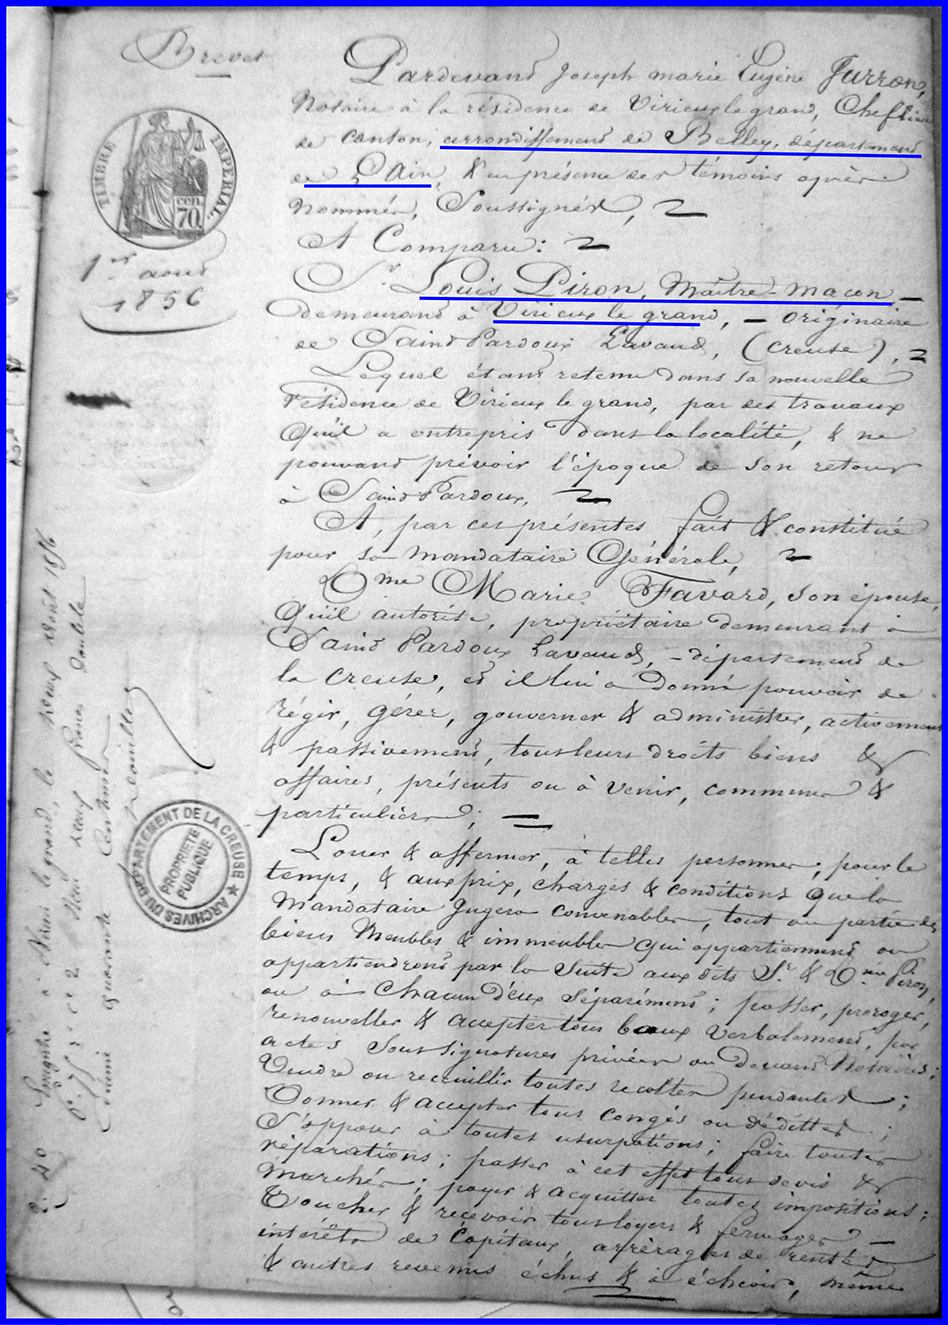 Brevet
TIMBRE IMPERIAL
70 cen
1er aout
1856
Pardevand Joseph marie Eugène Jurron,
Notaire à la résidence de Virieux le grand, Chef lieu
de canton, arrondissement de Belley, département
de L'Ain, & en présence des témoins après
nommés, Soussignés,
A Comparu :
Sr Louis Piron, Maître-macon
demeurand à Virieux le grand, — originaire
de Saind Pardoux Lavaud, (creuse),
Lequel étant retenu dans sa nouvelle
résidence de Virieux le grand, par des travaux
qu'il a entrepris dans la localité, & ne
pouvand prévoir l'époque de son retour
à Saind Pardoux,
A, par ces présentes fait & constitué
pour sa mandataire Générale,
Dme Marie Favard, son épouse,
qu'il autorise, propriétaire demeurant à
Saind Pardoux Lavaud, - département de
la Creuse, et il lui a donné pouvoir de
régir, gérer, gouverner & administrer, activement
& passivement, tous leurs droits biens &
affaires, présents ou à venir, communs &
particuliers ;
Louer & affermer, à telles personnes, pour le
temps, & aux prix, charges & conditions que la
Mandataire Jugera convenables, tout ou partie des
biens Meubles & immeubles qui appartiennent ou
appartiendront par la Suite aux dits Sr & Dme Piron,
ou à Chacun d'eux Séparément ; passer, proroger,
renouveller & accepter tous baux verbalement, par
actes sous signatures privées ou devant Notaires ;
Vendre ou recueillir toutes recoltes pendantes ;
Donner & accepter tous congés ou dédittes ;
S'opposer à toutes usurpations ; faire toutes
réparations ; passer à cet effet tous devis &
Marchés ; payer & acquitter toutes impositions ;
Toucher & recevoir tous loyers & fermages
intérêts de Capitaux, arrérages de rentes
& autres revenus échus & à échoir, même
ARCHIVES DU DEPARTEMENT DE LA CREUSE
PROPRIETE PUBLIQUE
à Virieu le grand, le neuf Août 1856
deux francs double
quarante Centimes